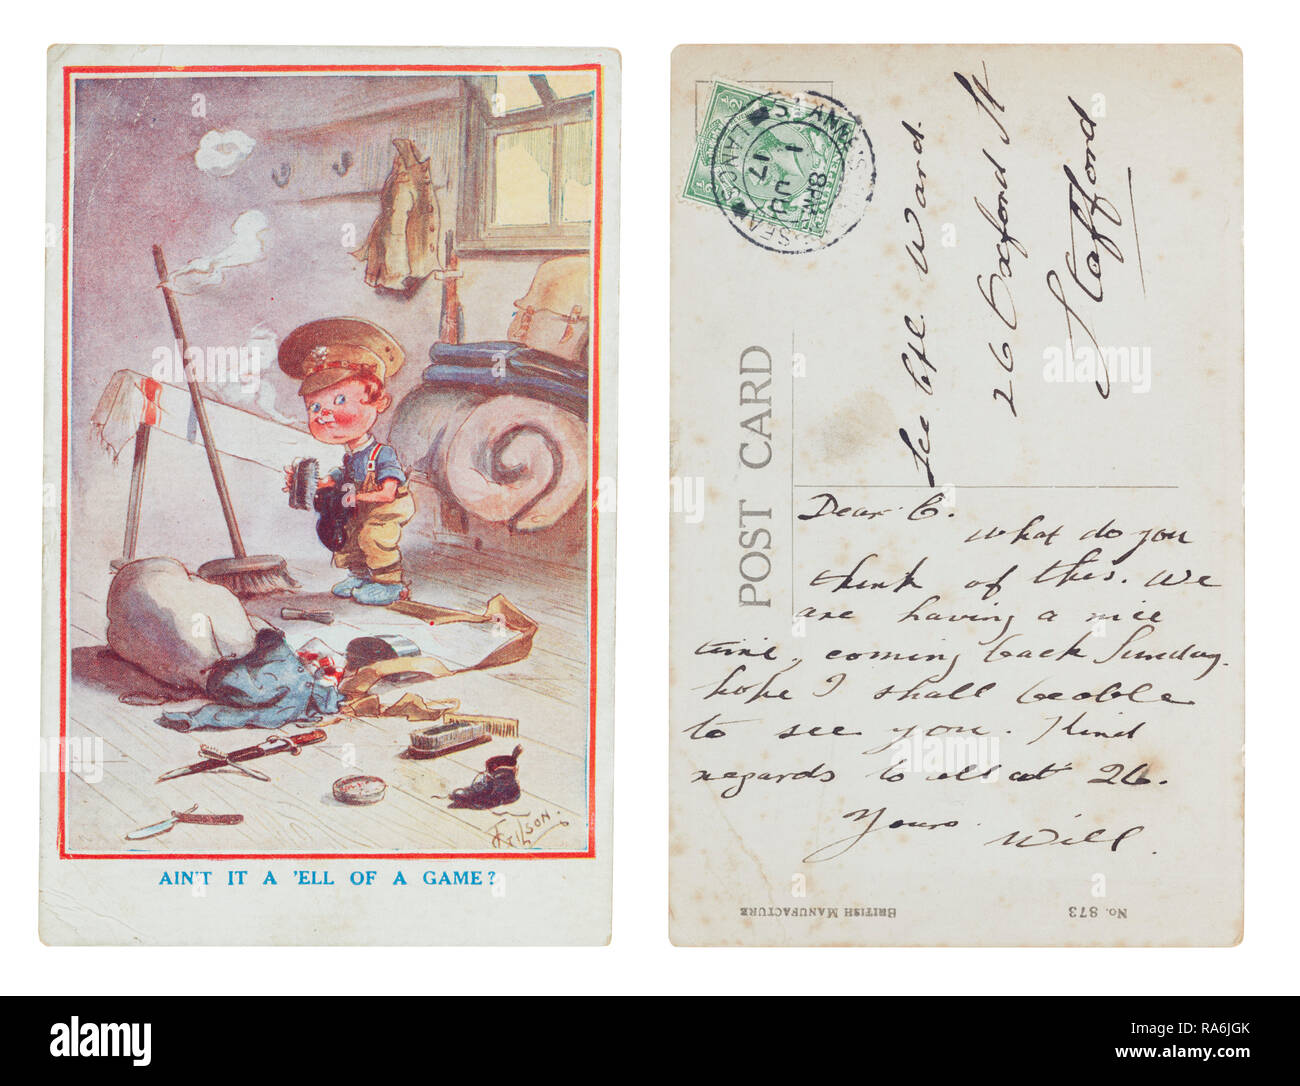 AIN'T IT A 'ELL OF A GAME?
F G Ilson.
POST CARD
½ ½
ST ANNES ON SEA
LANCS
8 PM
1 JU
17
Ward.
26 Oxford St
Stafford
Dear C.
What do you
think of this. We
are having a nice
time, coming back Sunday.
hope I shall be able
to see you. Kind
regards to all at 26.
Yours.
Will.
No. 873
BRITISH MANUFACTURE
alamy
alamy
Image ID: RA6JGK
www.alamy.com